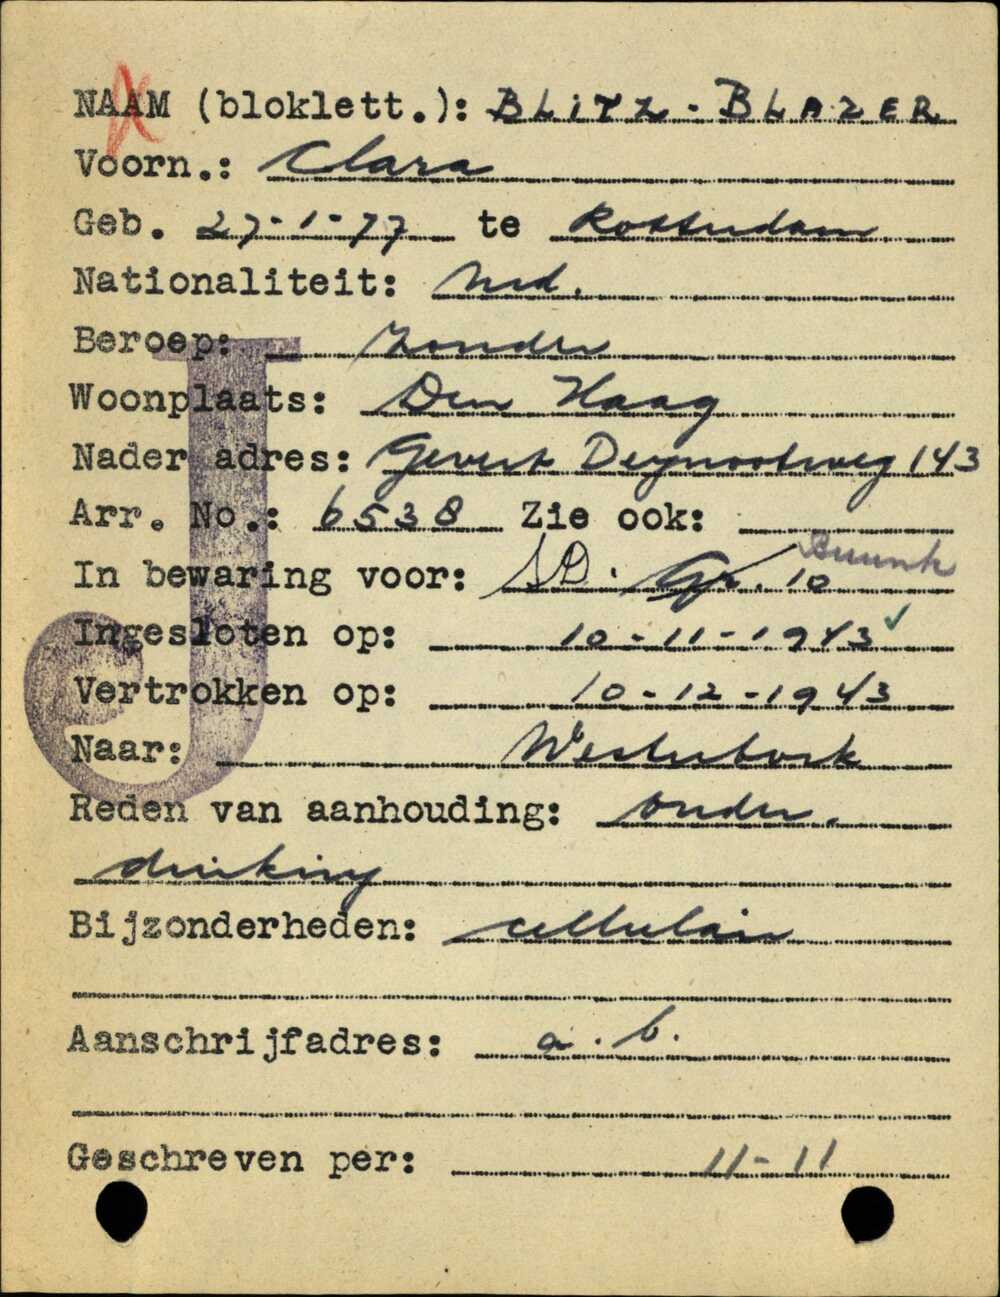 NAAM (bloklett.): BLITZ - BLAZER
Voorn.: Clara
Geb. 27-1-77 te Rotterdam
Nationaliteit: Ned.
Beroep: zonder
Woonplaats: Den Haag
Nader adres: Gevert Deynootweg 143
Arr. No.: 6538 Zie ook:
Buunk
In bewaring voor: SD. Gr. 10
Ingesloten op: 10-11-1943
Vertrokken op: 10-12-1943
Naar: Westerbork
Reden van aanhouding: onder.
duiking
Bijzonderheden: cellulair
Aanschrijfadres: a.b.
Geschreven per: 11-11
J